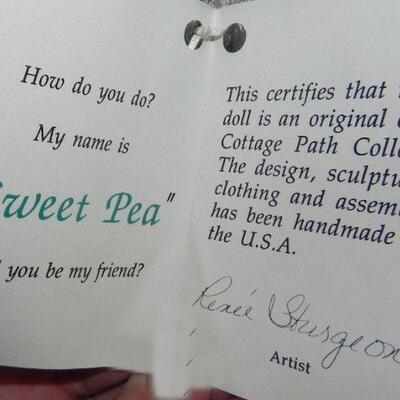 How do you do?
My name is
Sweet Pea"
you be my friend?
This certifies that
doll is an original
Cottage Path Colle
The design, sculptu
clothing and assem
has been handmade
the U.S.A.
Renée Sturgeon
Artist